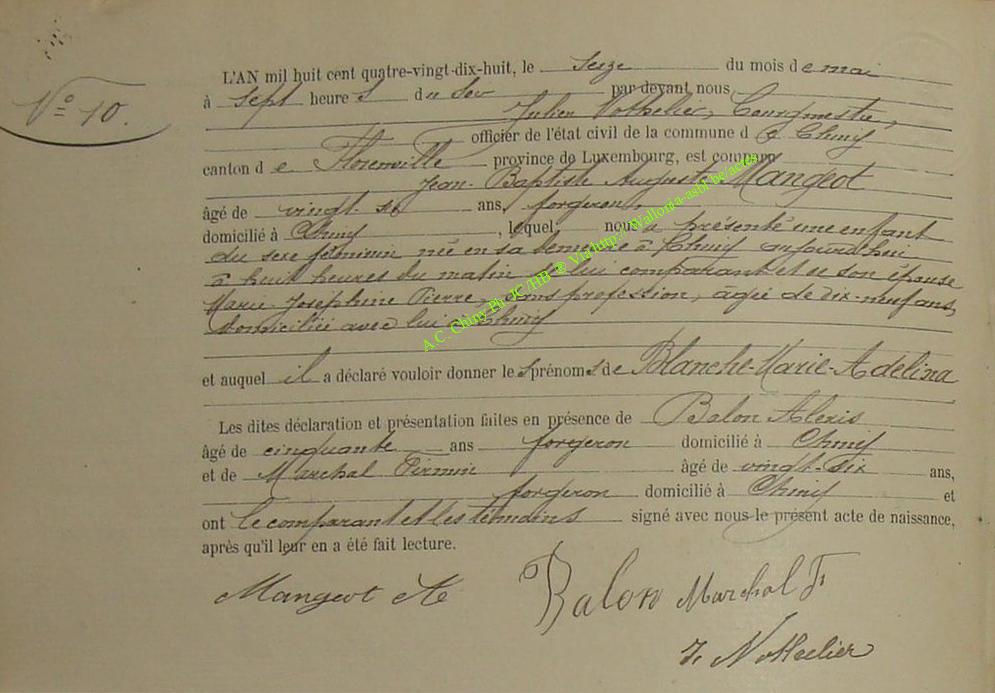 N° 10.
L'AN mil huit cent quatre-vingt-dix-huit, le seize du mois de mai
à sept heures du soir par devant nous,
Julien Nothelier, Bourgmestre,
officier de l'état civil de la commune de Chiny
canton de Florenville province de Luxembourg, est comparu
Jean-Baptiste Auguste Mangeot
âgé de vingt-six ans, forgeron,
domicilié à Chiny, lequel nous a présenté une enfant
du sexe féminin née en sa demeure à Chiny aujourd'hui
à huit heures du matin de lui comparant et de son épouse
Marie-Joséphine Pierre, sans profession, âgée de dix-neuf ans,
domiciliée avec lui à Chiny
et auquel il a déclaré vouloir donner les prénoms de Blanche-Marie-Adelina
Les dites déclaration et présentation faites en présence de Balon Alexis
âgé de cinquante ans forgeron domicilié à Chiny
et de Marchal Firmin âgé de vingt-six ans,
forgeron domicilié à Chiny et
ont le comparant et les témoins signé avec nous le présent acte de naissance,
après qu'il leur en a été fait lecture.
Mangeot A Balon Marchal F.
J. Nothelier
A.C. Chiny Ph JC/HB ® Via http://Wallonia-asbl-be/actes